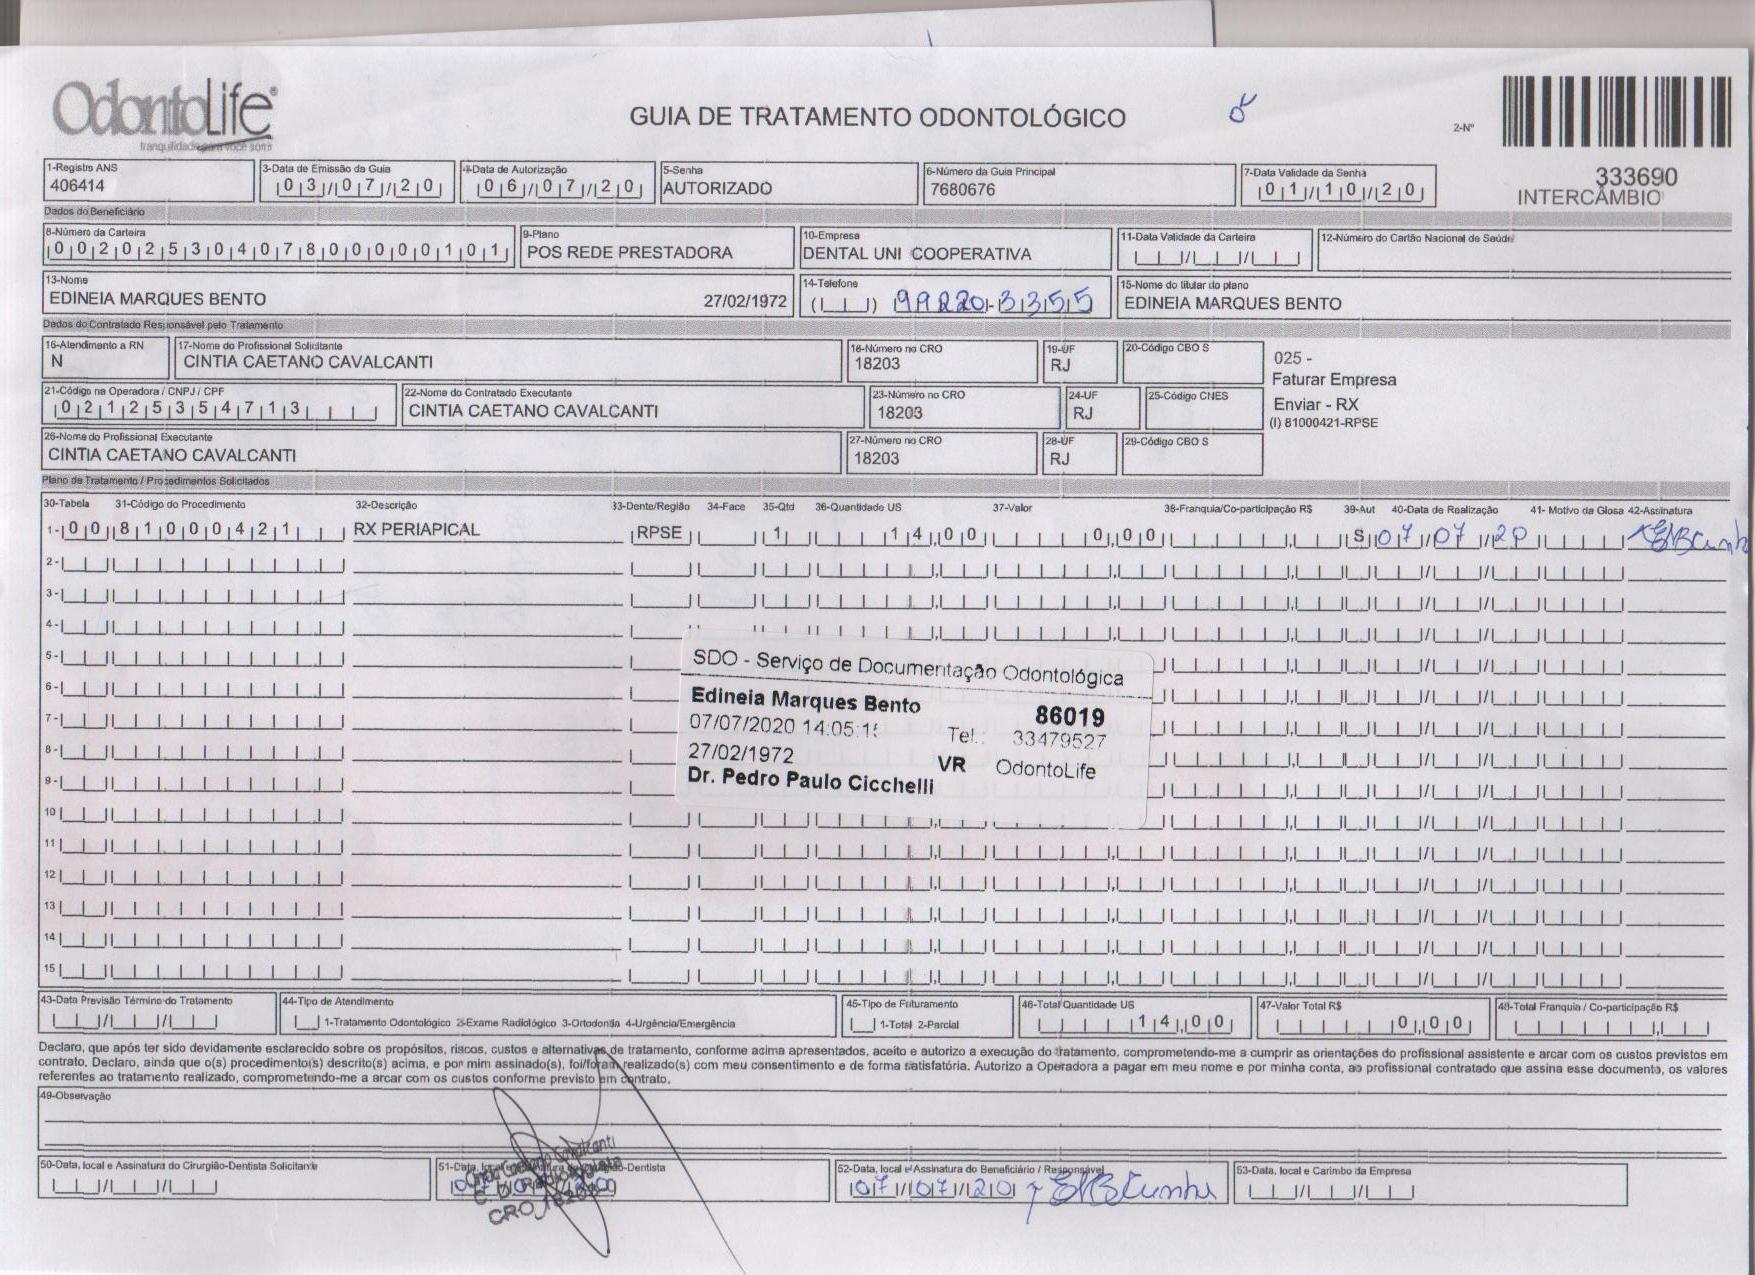 OdontoLife
tranquilidade para você sorrir
GUIA DE TRATAMENTO ODONTOLÓGICO
2-Nº
333690
INTERCÂMBIO
1-Registro ANS
406414
3-Data de Emissão da Guia
03/07/20
4-Data de Autorização
06/07/20
5-Senha
AUTORIZADO
6-Número da Guia Principal
7680676
7-Data Validade da Senha
01/10/20
Dados do Beneficiário
8-Número da Carteira
00202530407800000101
9-Plano
POS REDE PRESTADORA
10-Empresa
DENTAL UNI COOPERATIVA
11-Data Validade da Carteira
12-Número do Cartão Nacional de Saúde
13-Nome
EDINEIA MARQUES BENTO 27/02/1972
14-Telefone
99220-3355
15-Nome do titular do plano
EDINEIA MARQUES BENTO
Dados do Contratado Responsável pelo Tratamento
16-Atendimento a RN
N
17-Nome do Profissional Solicitante
CINTIA CAETANO CAVALCANTI
18-Número no CRO
18203
19-UF
RJ
20-Código CBO S
025 -
Faturar Empresa
Enviar - RX
(I) 81000421-RPSE
21-Código na Operadora / CNPJ / CPF
02125354713
22-Nome do Contratado Executante
CINTIA CAETANO CAVALCANTI
23-Número no CRO
18203
24-UF
RJ
25-Código CNES
26-Nome do Profissional Executante
CINTIA CAETANO CAVALCANTI
27-Número no CRO
18203
28-UF
RJ
29-Código CBO S
Plano de Tratamento / Procedimentos Solicitados
30-Tabela 31-Código do Procedimento 32-Descrição 33-Dente/Região 34-Face 35-Qtd 36-Quantidade US 37-Valor 38-Franquia/Co-participação R$ 39-Aut 40-Data de Realização 41- Motivo da Glosa 42-Assinatura
1- 00 81000421 RX PERIAPICAL RPSE 1 14,00 0,00 S 07/07/20 EBCunha
2-
3-
4-
5-
6-
7-
8-
9-
10
11
12
13
14
15
SDO - Serviço de Documentação Odontológica
Edineia Marques Bento 86019
07/07/2020 14:05:15 Tel.: 33479527
27/02/1972 VR OdontoLife
Dr. Pedro Paulo Cicchelli
43-Data Previsão Término do Tratamento
44-Tipo de Atendimento
1-Tratamento Odontológico 2-Exame Radiológico 3-Ortodontia 4-Urgência/Emergência
45-Tipo de Faturamento
1-Total 2-Parcial
46-Total Quantidade US
14,00
47-Valor Total R$
0,00
48-Total Franquia / Co-participação R$
Declaro, que após ter sido devidamente esclarecido sobre os propósitos, riscos, custos e alternativas de tratamento, conforme acima apresentados, aceito e autorizo a execução do tratamento, comprometendo-me a cumprir as orientações do profissional assistente e arcar com os custos previstos em
contrato. Declaro, ainda que o(s) procedimento(s) descrito(s) acima, e por mim assinado(s), foi/foram realizado(s) com meu consentimento e de forma satisfatória. Autorizo a Operadora a pagar em meu nome e por minha conta, ao profissional contratado que assina esse documento, os valores
referentes ao tratamento realizado, comprometendo-me a arcar com os custos conforme previsto em contrato.
49-Observação
50-Data, local e Assinatura do Cirurgião-Dentista Solicitante
51-Data, Dentista
Cintia Caetano Cavalcanti
CRO
52-Data, local e Assinatura do Beneficiário / Responsável
07/07/20 EBCunha
53-Data, local e Carimbo da Empresa